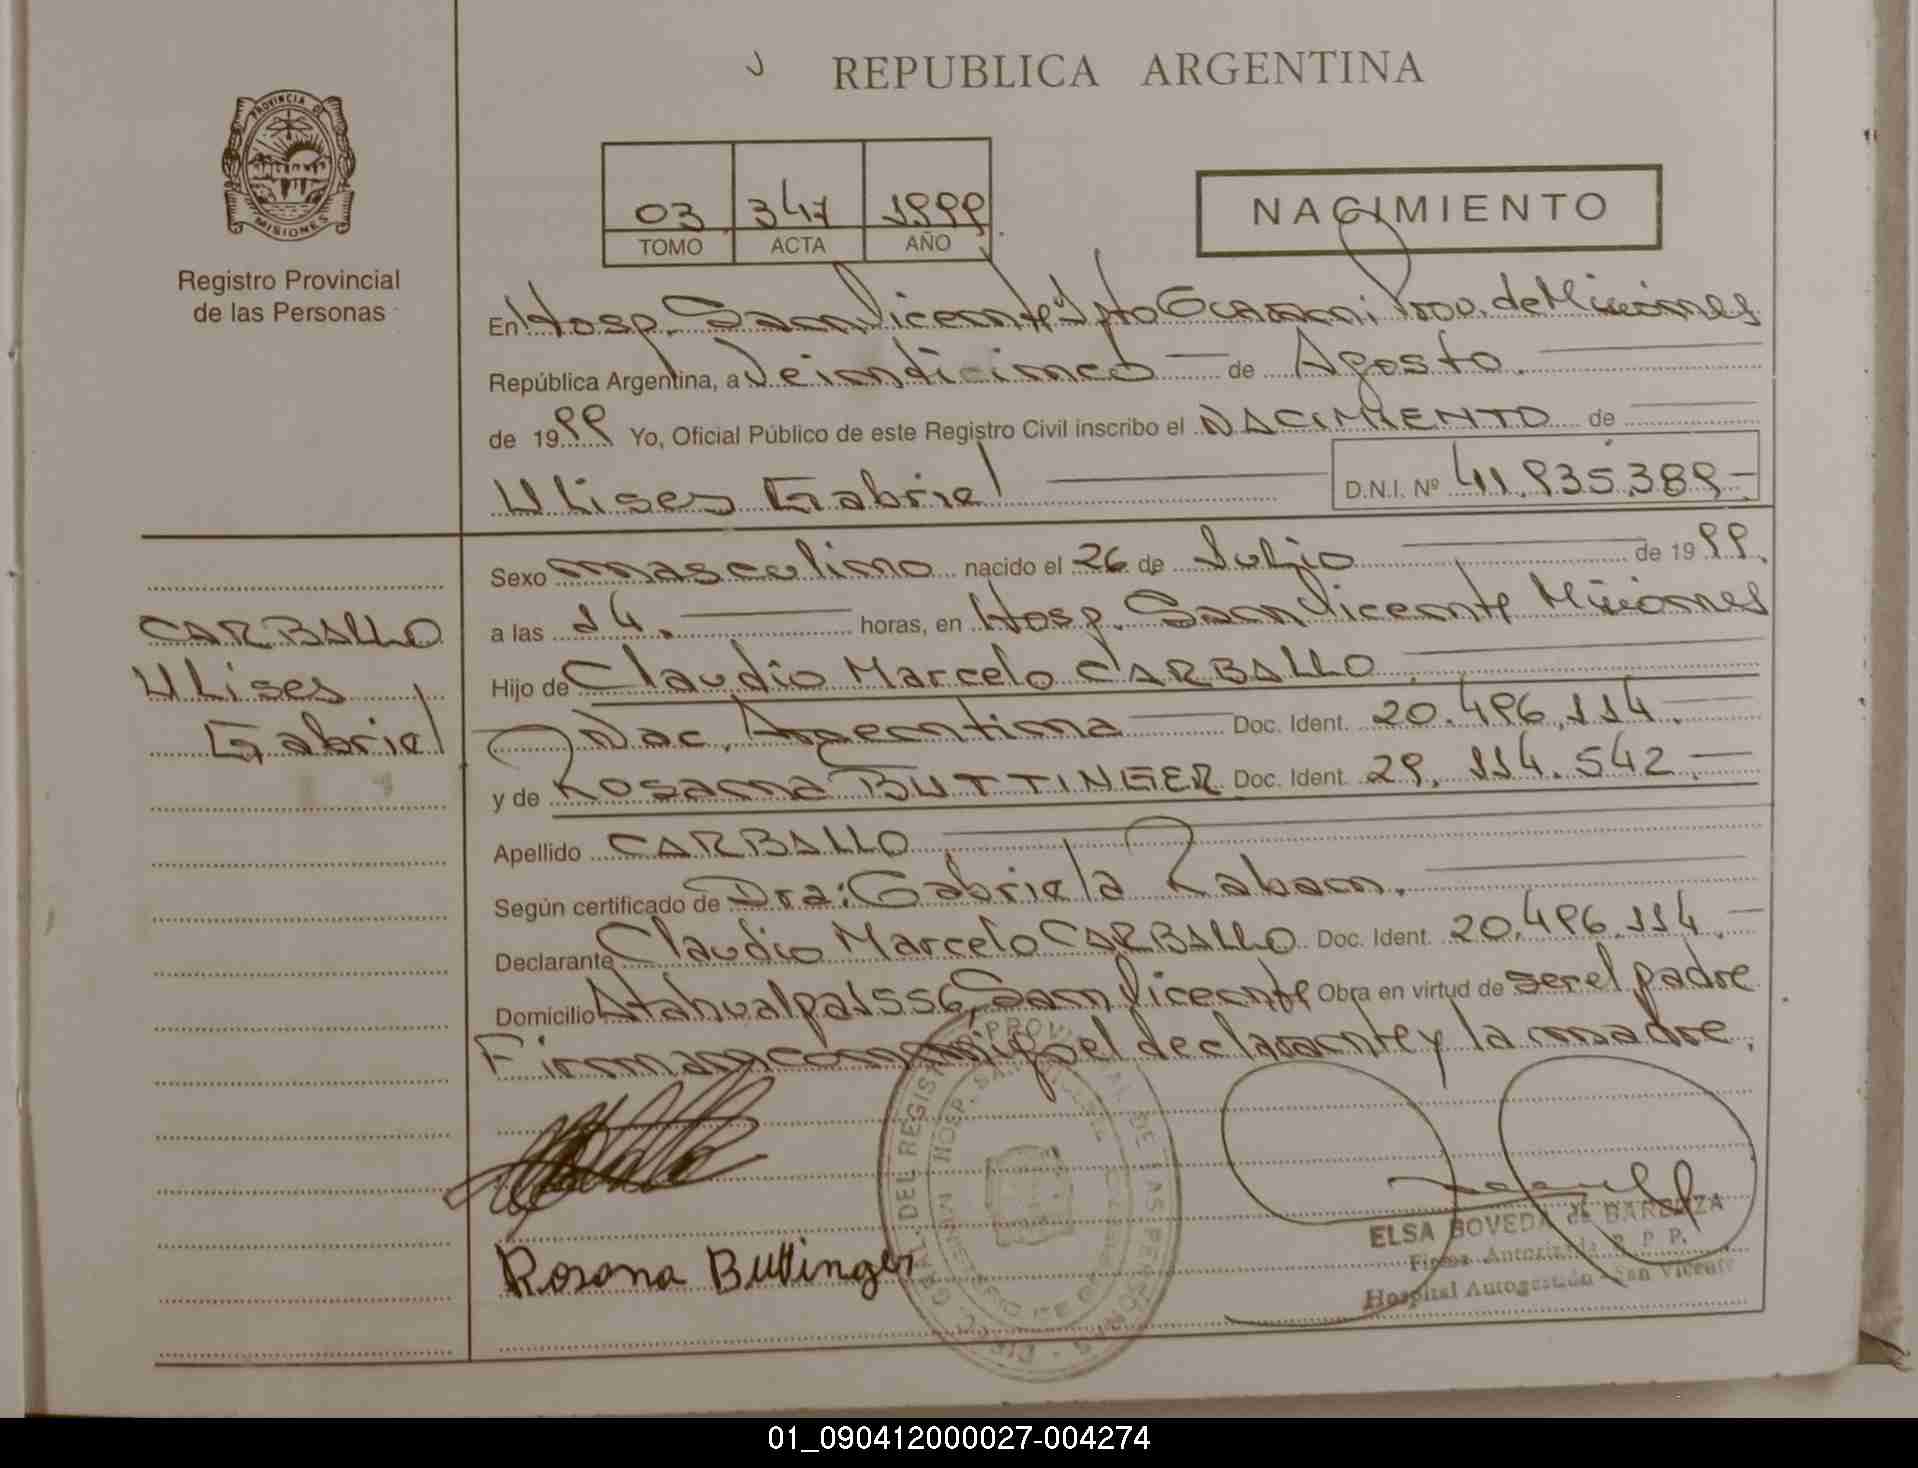 REPUBLICA ARGENTINA
PROVINCIA DE
MISIONES
Registro Provincial
de las Personas
03 347 1999
TOMO ACTA AÑO
NACIMIENTO
En Hosp. San Vicente Dpto Guarani Prov. de Misiones
República Argentina, a Veinticinco de Agosto.
de 1999 Yo, Oficial Público de este Registro Civil inscribo el NACIMIENTO de
Ulises Gabriel D.N.I. Nº 41.935.389.-
Sexo masculino nacido el 26 de Julio de 1999.
a las 14. horas, en Hosp. San Vicente Misiones
Hijo de Claudio Marcelo CARBALLO
Nac. Argentina Doc. Ident. 20.496.114.
y de Rosana BUTTINGER Doc. Ident. 29.114.542.-
Apellido CARBALLO
Según certificado de Dra: Gabriela Zaban.
Declarante Claudio Marcelo CARBALLO Doc. Ident. 20.496.114.-
Domicilio Atahualpa 1556, San Vicente Obra en virtud de ser el padre
Firman conmigo el declarante y la madre.
CARBALLO
Ulises
Gabriel
Rosana Buttinger
DIREC. GRAL. DEL REGISTRO PROVINCIAL DE LAS PERSONAS
HOSP. SAN VICENTE
MISIONES
ELSA BOVEDA de BARBOZA
Firma Autorizada R. P. P.
Hospital Autogestión - San Vicente
01_090412000027-004274